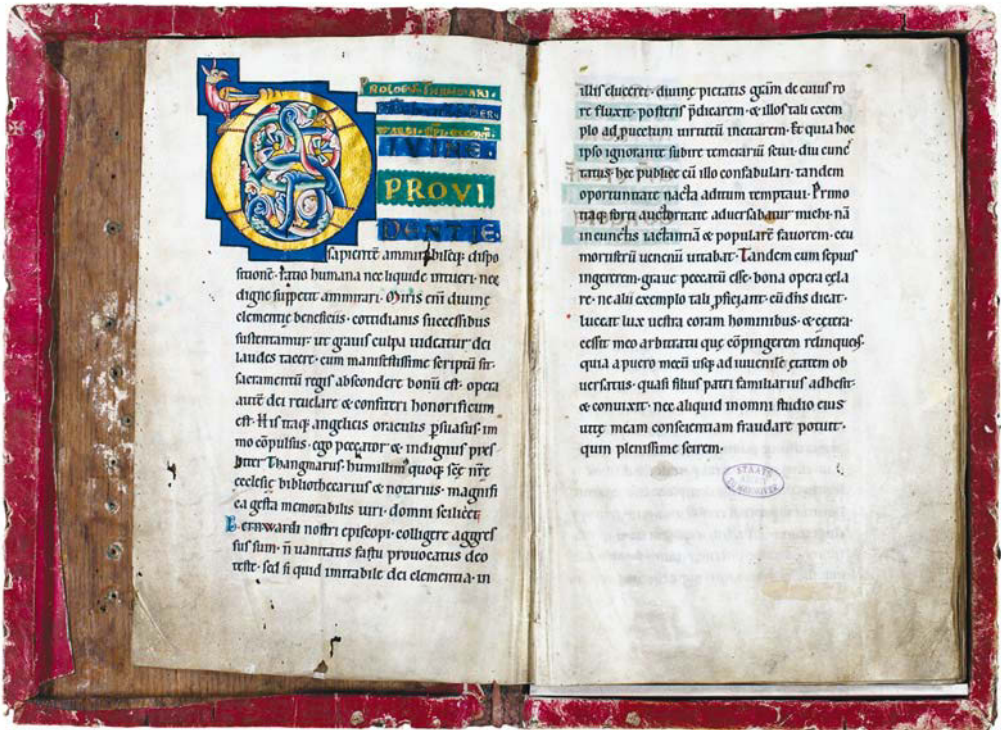 PROLOGUS THANGMARI
IVINE
PROVI
DENTIE
sapientē ammirabilēq; dispo
sitionē· ratio humana nec liquide intueri· nec
digne suppetit ammirari· Miris eni̅ diuinę
clementię beneficiis· cottidianis successibus
sustentamur· ut grauis culpa uideatur dei
laudes tacere· cum manifestissime scriptū sit·
sacramentū regis abscondere bonū est· opera
autē dei reuelare & confiteri honorificum
est· His itaq; angelicis oraculis p̱suasus· im
mo cōpulsus· ego peccator & indignus pres
biter Thangmarus· humillim; quoq; sc̄ę nr̄ę
ecclesię bibliothecarius & notarius· magnifi
ca gesta memorabilis uiri· domni scilicet
Bernwardi nostri episcopi· colligere aggres
sus sum· n̄ uanitatis fastu prouocatus deo
teste· sed si quid imitabile dei clementia· in
illis eluceret· diuinę pietatis gr̄am de cuius ro
re fluxit· posteris p̄dicarem· & illos tali exem
plo ad p̱fectum uirtutū incitarem· Et quia hoc
ipso ignorante subire temerariū sciui· diu cunc
tatus· hec publice cū illo confabulari· tandem
oportunitate nacta aditum temptaui· Primo
itaq; forti auctoritate aduersabatur michi· nā
in cunctis iactantiā & popularē fauorem· ceu
mortiferū uenenū uitabat· Tandem cum sepius
ingererem· graue peccatū esse· bona opera cęla
re· ne alii exemplo tali p̱ficiant· cū dn̄s dicat·
luceat lux uestra coram hominibus· & cętera·
cessit meo arbitratu quę cōpingerem relinquens·
quia a puero mecū usq; ad iuuenilē ętatem ob
uersatus· quasi filius patri familiarius adhesit·
& conuixit· nec aliquid in omni studio eius
uitę meam conscientiam fraudare potuit·
quin plenissime scirem·
STAATS
ARCHIV
HANNOVER